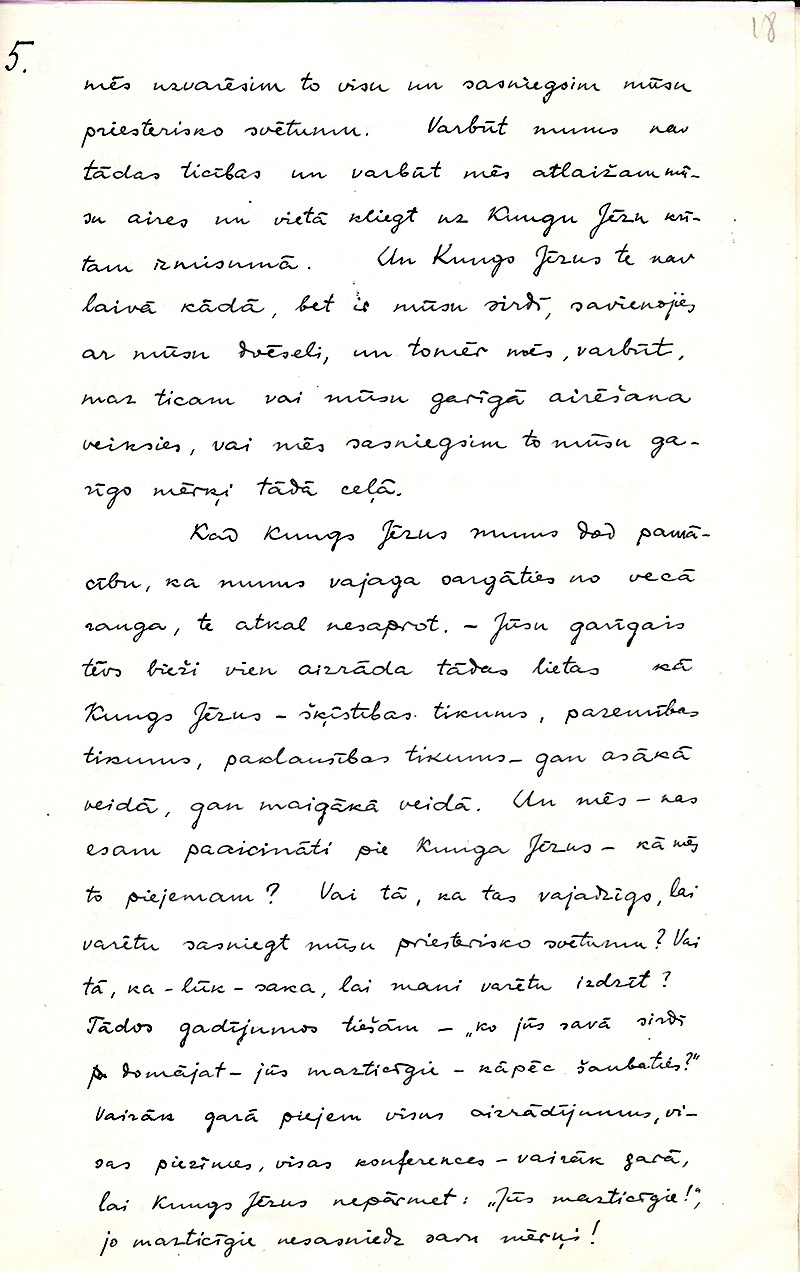 18
5.
mēs uzvarēsim to visu un sasniegsim mūsu
priesterisko svētumu. Varbūt mums nav
tādas ticības un varbūt mēs atlaižam mū-
su aires un vietā kliegt uz Kungu Jēzu krī-
tam izmisumā. Un Kungs Jēzus te nav
laivā kādā, bet ir mūsu sirdī, savienojies
ar mūsu dvēseli, un tomēr mēs, varbūt,
maz ticam vai mūsu garīgā airēšana
veiksies, vai mēs sasniegsim to mūsu ga-
rīgo mērķi tādā ceļā.
Kad Kungs Jēzus mums dod pamā-
cību, ka mums vajaga sargāties no vecā
rauga, te atkal nesaprot. – Jūsu garīgais
tēvs bieži vien aizrāda tādas lietas kā
Kungs Jēzus – šķīstības tikums, pazemības
tikums, paklausības tikums – gan asākā
veidā, gan maigākā veidā. Un mēs – kas
esam paaicināti pie Kunga Jēzus – kā mēs
to pieņemam? Vai tā, ka tas vajadzīgs, lai
varētu sasniegt mūsu priesterisko svētumu? Vai
tā, ka – lūk – saka, lai mani varētu izdzīt?
Tādos gadījumos tiešām – „ko jūs savā sirdī
domājat – jūs mazticīgie – kāpēc šaubaties?"
Vairāk garā pieņem visus aizrādījumus, vi-
sas piezīmes, visas konferences – vairāk garā,
lai Kungs Jēzus nepārmet: „Jūs mazticīgie!",
jo mazticīgie nesasniedz savu mērķi!